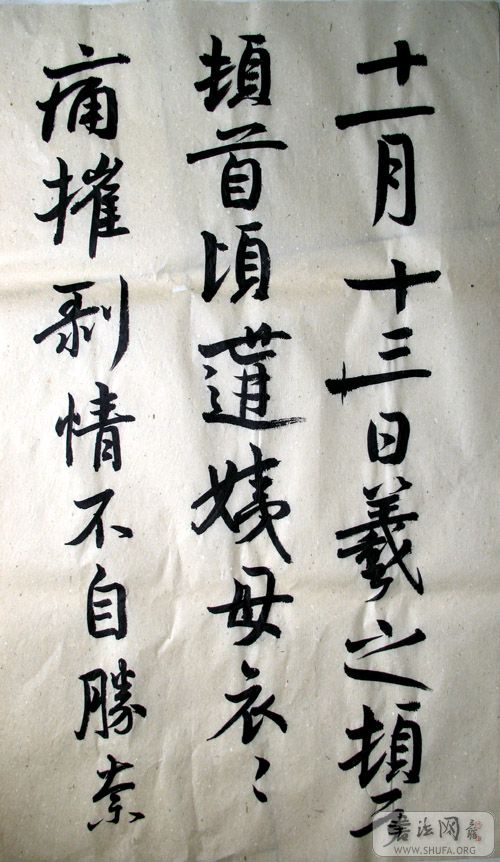 十一月十三日羲之頓首
頓首頃遘姨母哀〻
痛摧剥情不自勝奈
书法网
WWW.SHUFA.ORG